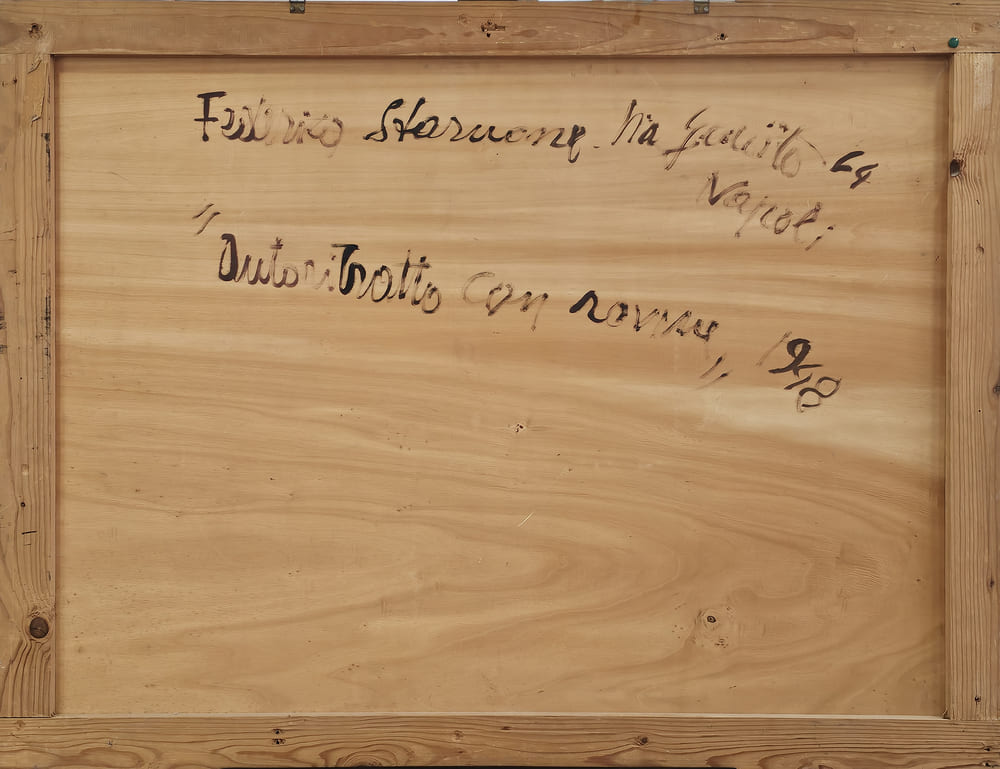 Federico Starnone. Via Gemito 64
Napoli
"Autoritratto con rovine" 1948